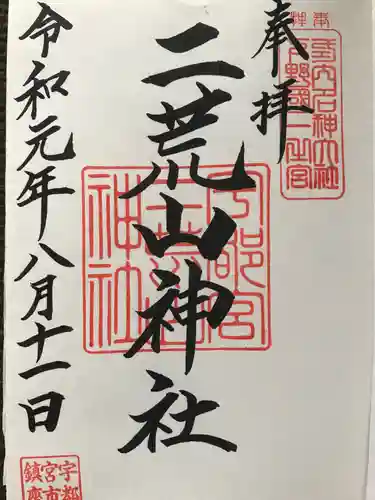 奉拝
式内名神大社
下野國一之宮
二荒山神社
宇都宮
二荒山
神社
令和元年八月十一日
宇都
宮市
鎮座